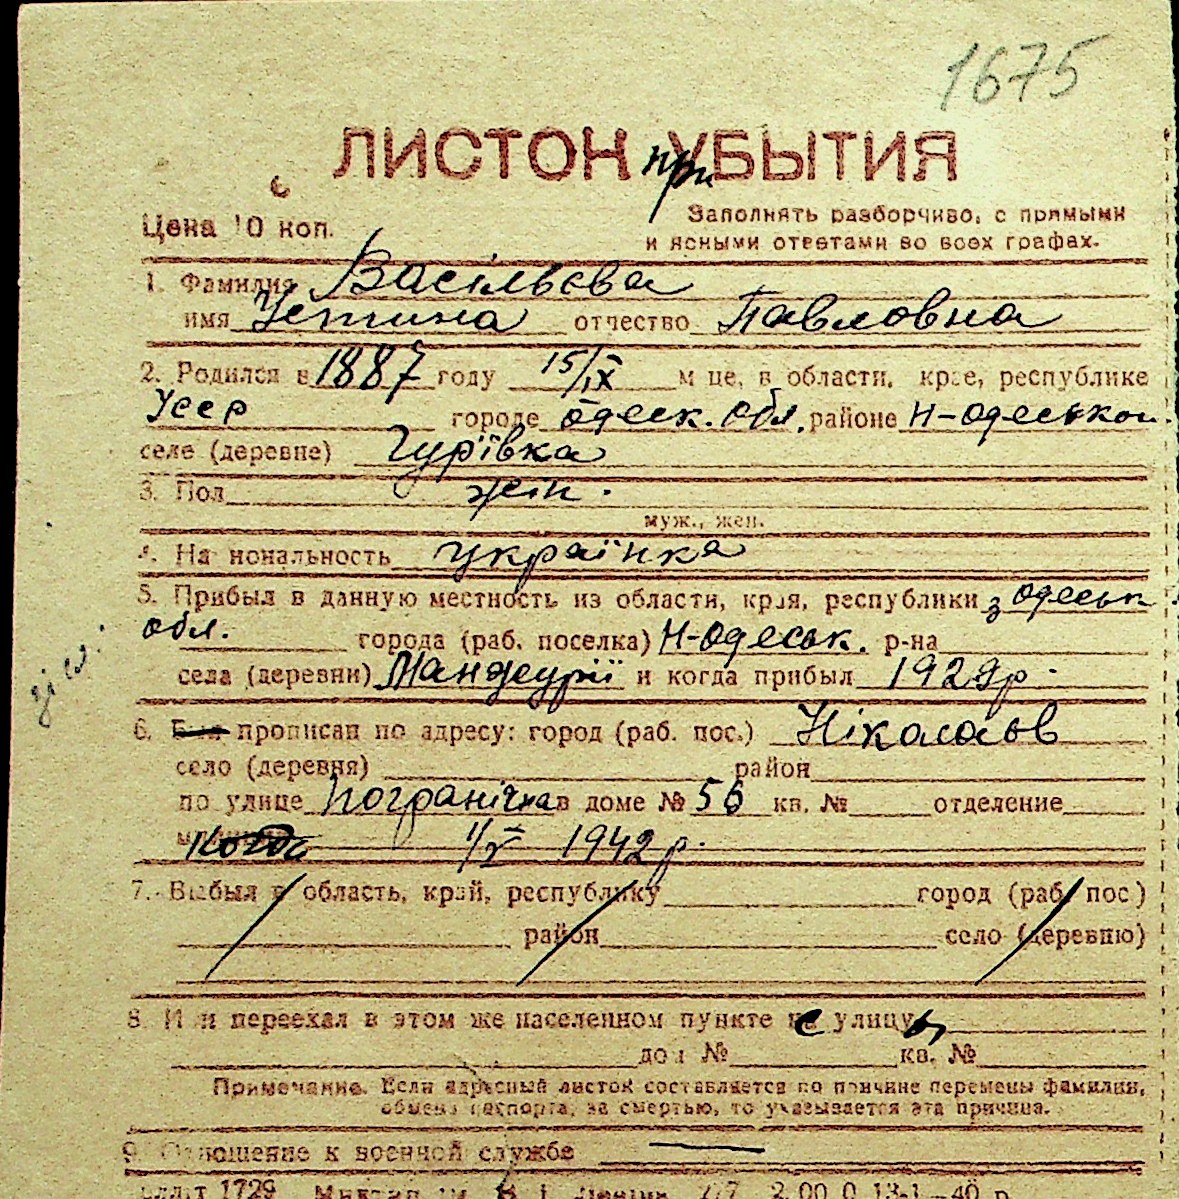 1675
ЛИСТОК при УБЫТИЯ
Цена 10 коп.
Заполнять разборчиво, с прямыми
и ясными ответами во всех графах.
1. Фамилия Васільєва
имя Устина отчество Павловна
2. Родился в 1887 году 15/IX м-це, в области, крае, республике
УССР городе Одеск. обл. районе Н-Одеськом
селе (деревне) Гурівка
3. Пол жін.
муж., жен.
4. Национальность українка
5. Прибыл в данную местность из области, края, республики з Одеськ
обл. города (раб. поселка) Н-Одеськ. р-на
села (деревни) Манжурії и когда прибыл 1929 р.
6. Был прописан по адресу: город (раб. пос.) Ніколаєв
село (деревня) район
по улице Погранічна в доме № 56 кв. № отделение
Когда 1/V 1942 р.
7. Выбыл в область, край, республику город (раб. пос.)
район село (деревню)
8. Или переехал в этом же населенном пункте с улицы
дом № кв. №
Примечание. Если адресный листок составляется по причине перемены фамилии,
обмена паспорта, за смертью, то указывается эта причина.
9. Отношение к военной службе —
1729 13-1—40 р.